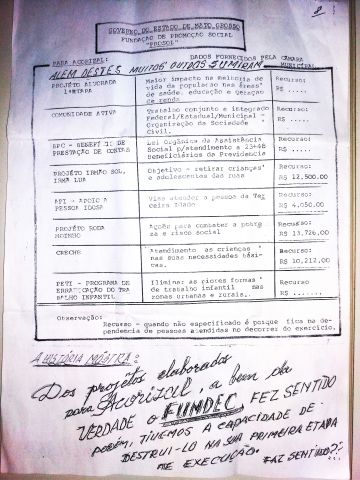 GOVERNO DO ESTADO DE MATO GROSSO
FUNDAÇÃO DE PROMOÇÃO SOCIAL
"PROSOL"
PARA ACORIZAL: DADOS FORNECIDOS PELA CÂMARA MUNICIPAL
ALÉM DESTES MUITOS OUTROS SUMIRAM
PROJETO ALVORADA Maior impacto na melhoria de Recurso:
vida da população nas áreas R$ .....
de saúde, educação e geração
de renda
COMUNIDADE ATIVA Trabalho conjunto e integrado Recurso:
Federal/Estadual/Municipal - R$ .....
Organização da Sociedade
Civil.
BPC - BENEFÍCIO DE Lei Orgânica da Assistência Recurso:
PRESTAÇÃO DE CONTAS Social p/atendimento a R$ .....
Beneficiários da Previdencia
PROJETO IRMÃO SOL, Objetivo - retirar crianças Recurso:
IRMA LUA e adolescentes das ruas R$ 12,500.00
API - APOIO A Visa atender a pessoa da Ter Recurso:
PESSOA IDOSA ceira Idade R$ 4,050.00
PROJETO RODA Ações para combater a pobre Recurso:
MOINHO za e risco social R$ 13,726.00
CRECHE Atendimento as crianças ' Recurso:
nas suas necessidades bási- R$ 10,212.00
cas.
PETI - PROGRAMA DE Ilimina: as piores formas ' Recurso:
ERRADICAÇÃO DO TRA de trabalho infantil nas R$ .......
BALHO INFANTIL zonas urbanas e rurais..
Observação:
Recurso - quando não especificado é porque fica na de-
pendencia de pessoas atendidas no decorrer do exercício.
A HISTÓRIA MOSTRA:
Dos projetos elaborados
para Acorizal, a bem da
VERDADE O FUNDEC, FEZ SENTIDO
PORÉM, TIVEMOS A CAPACIDADE DE
DESTRUI-LO NA SUA PRIMEIRA ETAPA
DE EXECUÇÃO. FAZ SENTIDO??